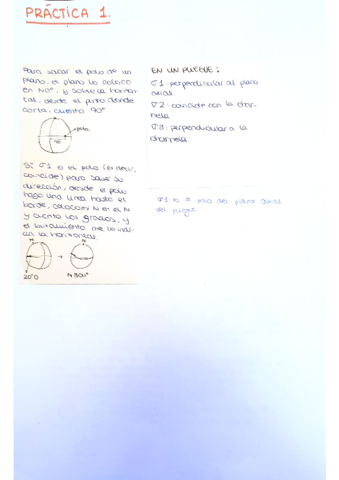 PRÁCTICA 1.
Para sacar el polo de un
plano, el plano lo coloco
en N0°, y sobre la horizon
tal, desde el punto donde
corta, cuento 90°
polo
90
Si σ1 es el polo (es decir,
coincide) para saber su
dirección, desde el polo
hago una línea hasta el
borde, coloco el N en el N
y cuento los grados, y
el buzamiento me lo indi-
can la horizontal.
N
N
EN UN PLIEGUE:
σ1: perpendicular al plano
axial.
σ2: coincide con la char-
nela
σ3: perpendicular a la
charnela
σ1 es = polo del plano axial
del pliegue